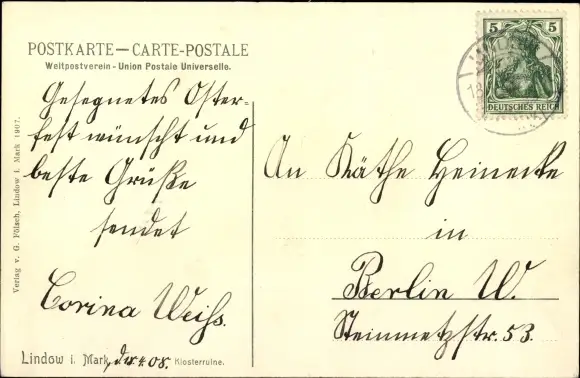 POSTKARTE — CARTE-POSTALE
Weltpostverein - Union Postale Universelle.
Gesegnetes Oster-
fest wünscht und
beste Grüße
sendet
Corina Weiß.
Lindow i. Mark, 4. 08. Klosterruine.
Verlag v. G. Pölsch, Lindow i. Mark 1907.
5 5
DEUTSCHES REICH
An Käthe Heinecke
in
Berlin W.
Steinmetzstr. 53.